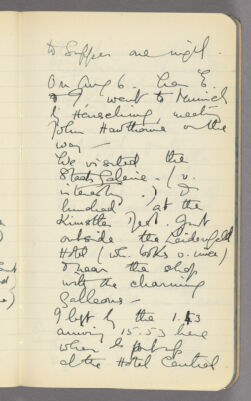 to supper one night.
On Aug 6. Herr E.
& I, went to Munich
& Herrsching, meeting
John Hawthorne on the
way –
We visited the
Staats Galerie. (v.
interesting.) &
lunched at the
Künstler Fest. Just
outside the
Hotel (wh. looks v. nice)
& near the shop
with the charming
galleons –
I left by the 1.53
arriving 15.53 here
when he put up
at the Hotel Central